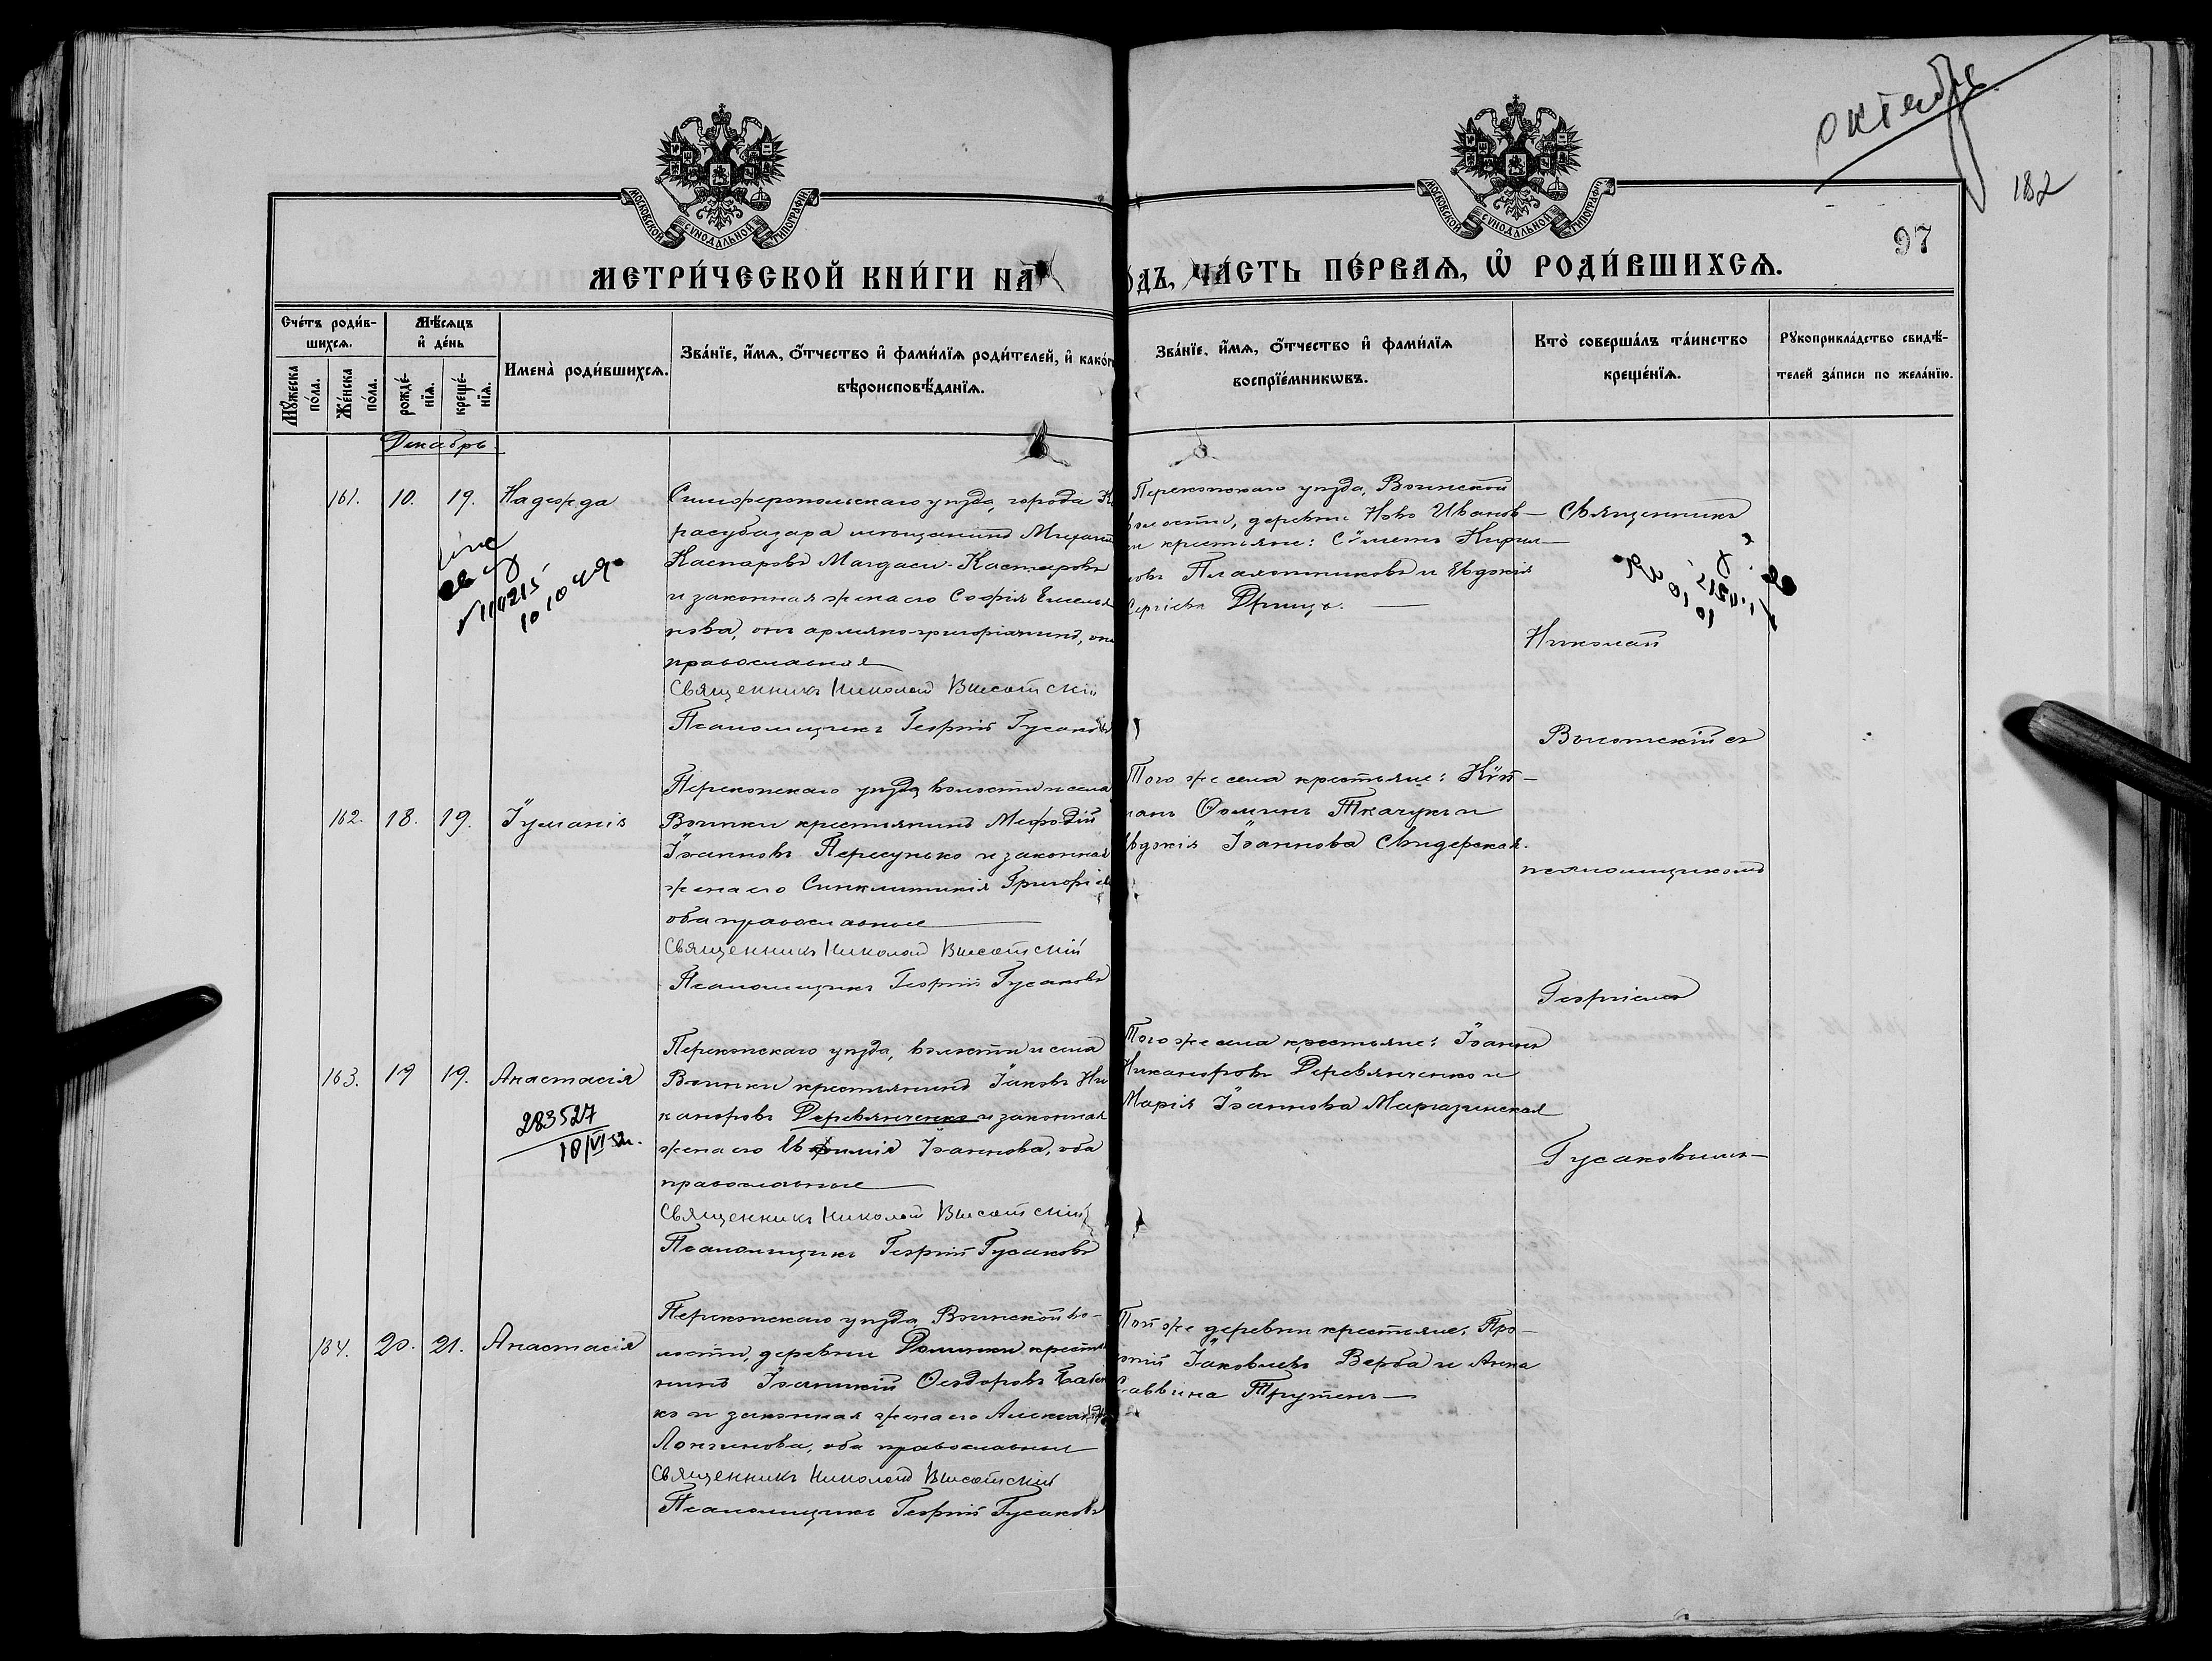 октябрь
182
97
МОСКОВСКОЙ СѴНОДАЛЬНОЙ ТИПОГРАФІИ
МОСКОВСКОЙ СѴНОДАЛЬНОЙ ТИПОГРАФІИ
МЕТРИ́ЧЕСКОЙ КНИ́ГИ НА
ЧА́СТЬ ПЕ́РВАѦ, Ѡ҆ РОДИ́ВШИХСѦ.
Сче́тъ роди́в-
шихсѧ.
Мꙋ́жеска по́ла.
Же́нска по́ла.
Мѣ́сѧцъ
и҆ де́нь
рожде́-
нїѧ.
креще́-
нїѧ.
Имена̀ роди́вшихсѧ.
Зва́нїе, и҆́мѧ, ѻ҆́тчество и҆ фами́лїѧ роди́телей, и҆ како́г
вѣроисповѣ́данїѧ.
Зва́нїе, и҆́мѧ, ѻ҆́тчество и҆ фами́лїѧ
воспрїе́мникѡвъ.
Кто̀ соверша́лъ та́инство
креще́нїѧ.
Рꙋкоприкла́дство свидѣ́-
телей за́писи по жела́нїю.
Декабрь
161. 10. 19. Надежда
Симферопольскаго уѣзда, города К
расубазара мѣщанинъ
Каспаровъ
и законная жена его Софія Емелья
нова, онъ армяно-григоріанинъ, она
православная
Священникъ Николай Высотскій
Псаломщикъ Георгій Гусаковъ
Перекопскаго уѣзда, Воинской
волости, деревни Ново Иванов-
ки крестьяне: Кирил-
ловъ Плахотниковъ и Евдокія
Сергіева
114215
10 10 49
162. 18. 19. Іуліанія
Перекопскаго уѣзда, волости и села
Воинки крестьянинъ Меѳодій
Іоанновъ Пересунько и законная
жена его Синклитикія Григоріева
оба православные
Священникъ Николай Высотскій
Псаломщикъ Георгій Гусаковъ
Того же села крестьяне:
Ѳоминъ Ткачукъ и
Евдокія Іоаннова Свидерская.
163. 19 19. Анастасія
283527
10/VI 52 г.
Перекопскаго уѣзда, волости и села
Воинки крестьянинъ Іаковъ Ни
каноровъ Деревянченко и законная
жена его Евфимія Іоаннова, оба
православные
Священникъ Николай Высотскій
Псаломщикъ Георгій Гусаковъ
Того же села крестьяне: Іоаннъ
Никаноровъ Деревянченко и
Марія Іоаннова
164. 20. 21. Анастасія
Перекопскаго уѣзда, Воинской во-
лости, деревни крестья
нинъ Іоанникій Ѳеодоровъ
ко и законная жена его Александра
Лонгинова, оба православные
Священникъ Николай Высотскій
Псаломщикъ Георгій Гусаковъ
Той же деревни крестьяне:
Іаковлевъ Верба и Анна
Саввина Трутень
Священникъ
Николай
Высотскій съ
псаломщикомъ
Георгіемъ
Гусаковымъ